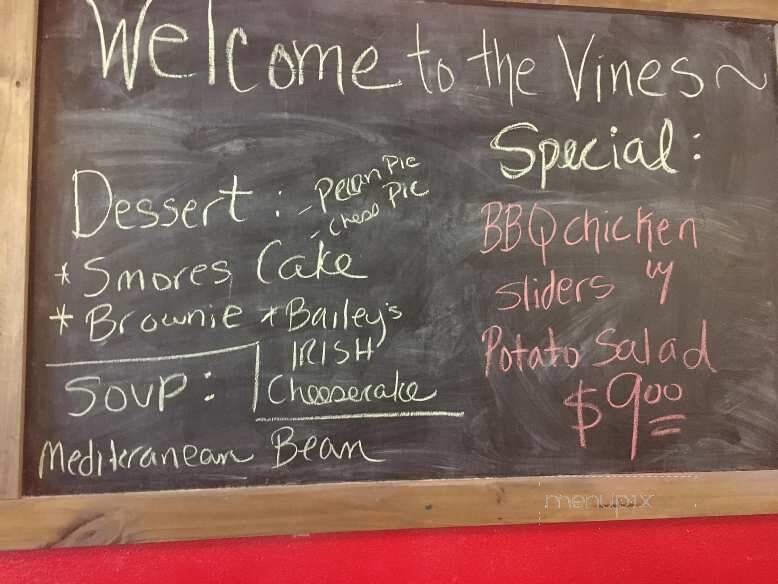 Welcome to the Vines ~
Dessert :
- Pecan Pie
- Chess Pie
* Smores Cake
* Brownie * Bailey's
IRISH
Cheesecake
Soup :
Mediteranean Bean
Special :
BBQ chicken
sliders w/
Potato Salad
$9.00
menupix